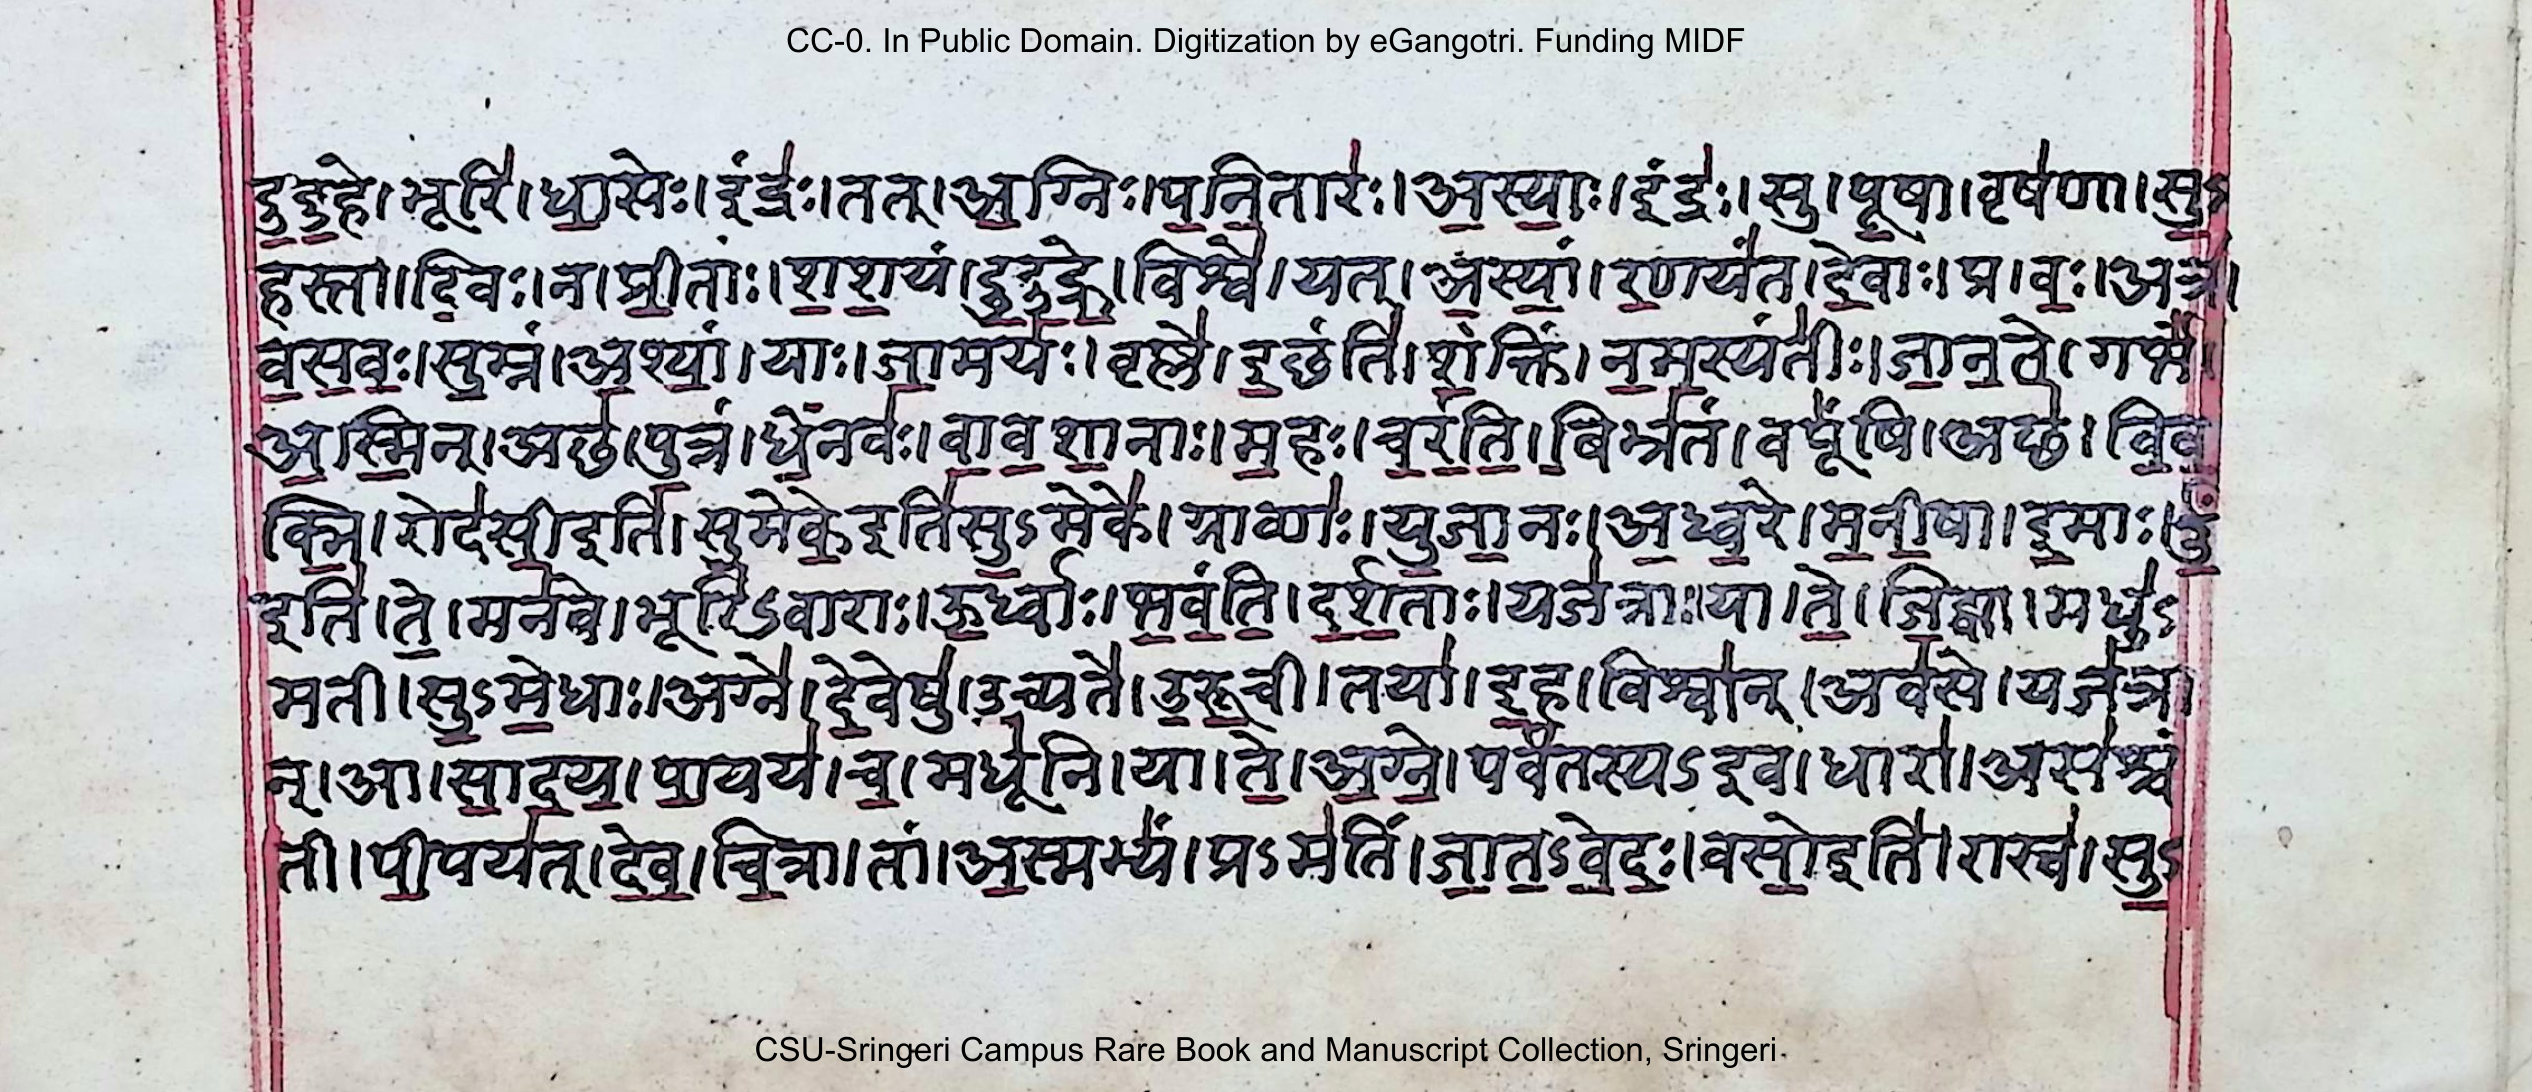 CC-0. In Public Domain. Digitization by eGangotri. Funding MIDF
दु॒दु॒हे। भूरि॑। धा॒सेः। इंद्रः॑। तत्। अ॒ग्निः। प॒नि॒तारः॑। अ॒स्याः॒। इंद्रः॑। सु। पू॒षा। वृष॑णा। सु॒ऽ
हस्ता॑। दि॒वः। न। प्री॒ताः। श॒श॒यं। दु॒दु॒ह्रे॒। विश्वे॑। यत्। अ॒स्यां॒। र॒णय॑त। दे॒वाः। प्र। वः॒। अत्र॑।
व॒स॒वः॒। सु॒म्नं। अ॒श्यां॒। याः। जा॒मयः॑। वृष्णे॑। इ॒छंति॑। श॒क्तिं। न॒म॒स्यंतीः॑। जा॒न॒ते॒। गर्भं॑।
अ॒स्मि॒न्। अछ॑। पु॒त्रं। धे॒नवः॑। वा॒व॒शा॒नाः। म॒हः। च॒रं॒ति॒। बिभ्र॑तं। वपूं॑षि। अछ॑। वि॒व॒
क्मि॒। रोद॑सी॒इति॑। सु॒मेके॒इति॑सु॒ऽमेके॑। ग्राव्णः॑। यु॒जा॒नः। अ॒ध्व॒रे। म॒नी॒षा। इ॒माः। ऊं॒
इति॑। ते॒। मन॑वे। भूरि॑ऽवाराः। ऊ॒र्ध्वाः। भ॒वं॒ति॒। द॒र्श॒ताः। यज॑त्राः। या। ते॒। जि॒ह्वा। मधु॑ऽ
मती। सु॒ऽमे॒धाः। अग्ने॑। दे॒वेषु॑। उ॒च्यते॑। उ॒रू॒ची। तया॑। इ॒ह। विश्वा॑न्। अव॑से। यज॑त्रा
न्। आ। सा॒द॒य॒। पा॒यय॑। च॒। मधू॑नि। या। ते॒। अ॒ग्ने॒। पर्व॑तस्यऽइव। धारा॑। अस॑श्चं
ती। पी॒पय॑त्। दे॒व॒। चि॒त्रा। तां। अ॒स्मभ्यं॑। प्रऽम॑तिं। जा॒त॒ऽवे॒दः॒। वसो॒इति॑। रास्व॑। सु॒ऽ
CSU-Sringeri Campus Rare Book and Manuscript Collection, Sringeri